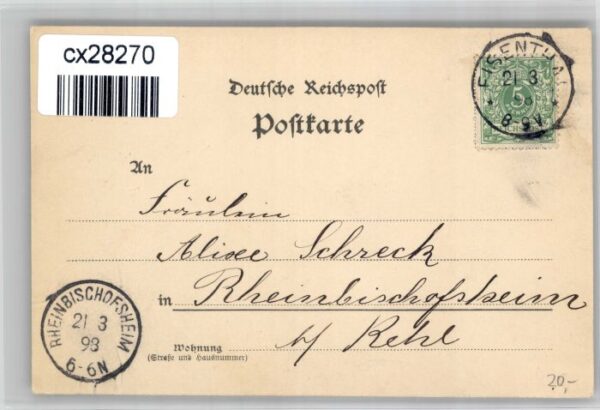 cx28270
Deutsche Reichspost
Postkarte
EISENTHAL
21 3
8-9V.
5
An
Fräulein
Alice Schreck
in Rheinbischofsheim
b/ Kehl
Wohnung
(Straße und Hausnummer)
RHEINBISCHOFSHEIM
21 3
98
6-6N
20,-